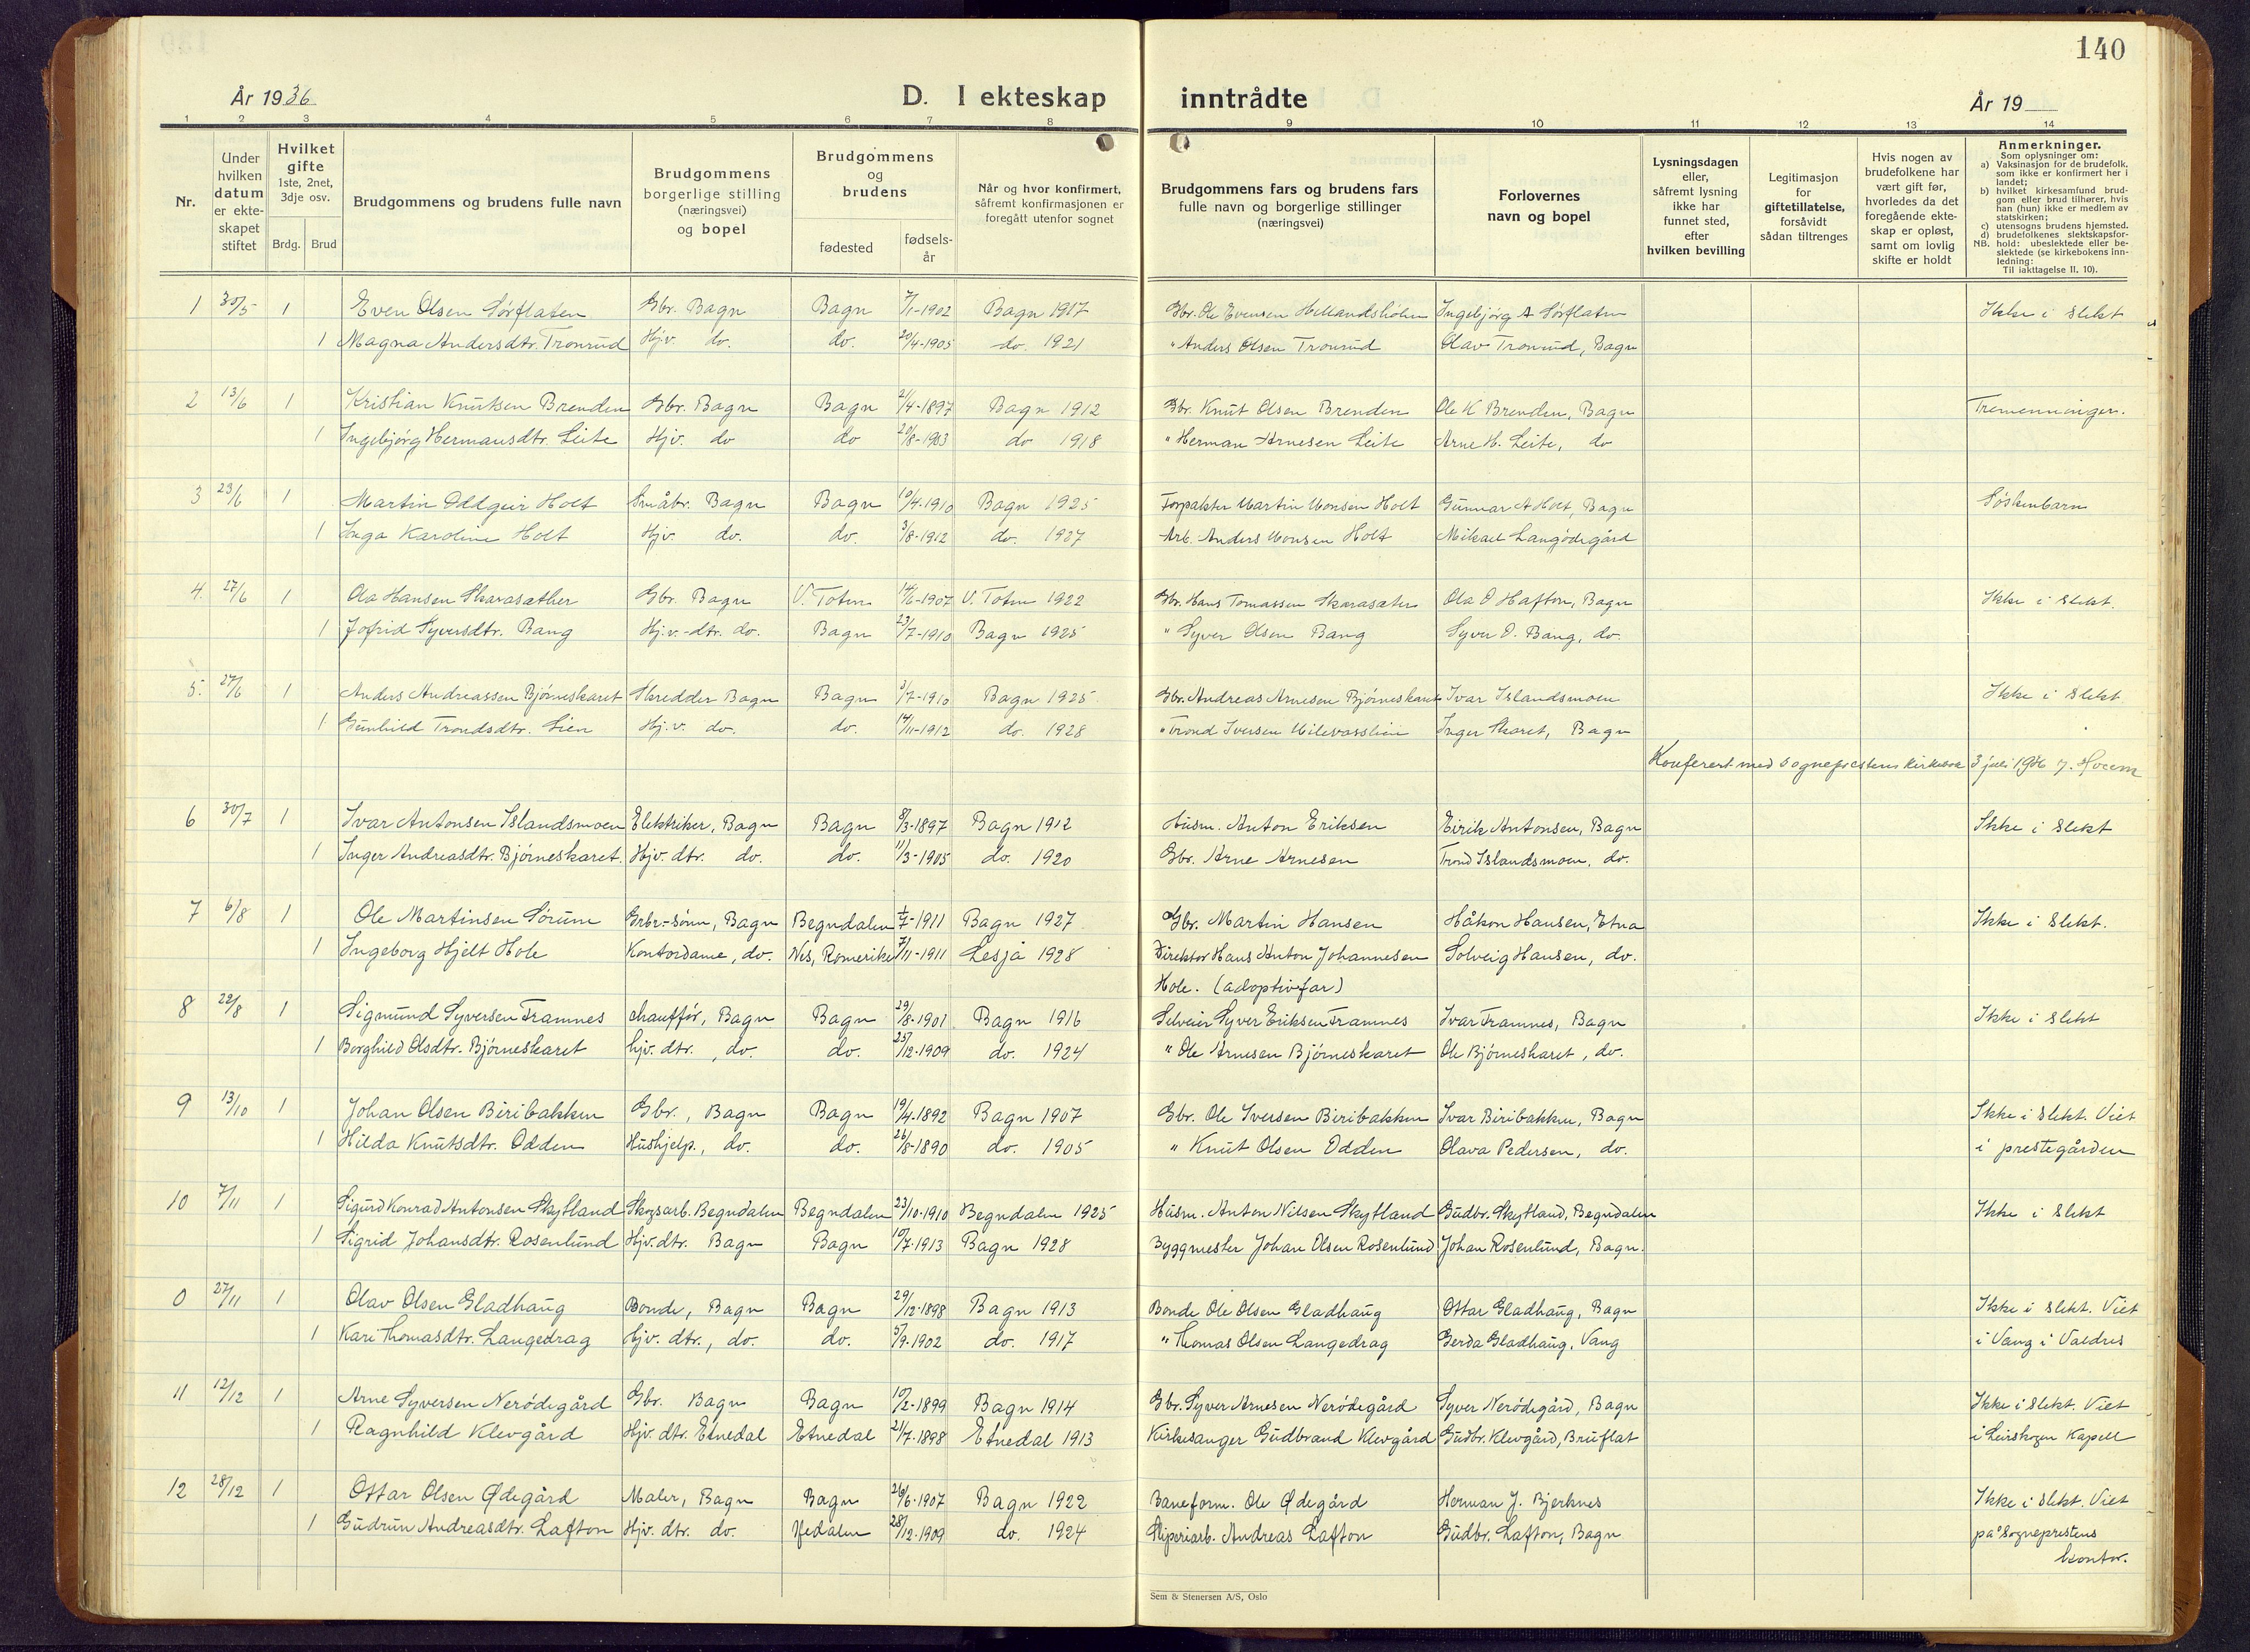 140
År 1936
D. I ekteskap inntrådte
År 19
1 2 3 4 5 6 7 8 9 10 11 12 13 14
Nr.
Under hvilken datum er ekteskapet stiftet
Hvilket gifte 1ste, 2net, 3dje osv.
Brdg. Brud
Brudgommens og brudens fulle navn
Brudgommens borgerlige stilling (næringsvei) og bopel
Brudgommens og brudens
fødested
fødsels-år
Når og hvor konfirmert, såfremt konfirmasjonen er foregått utenfor sognet
Brudgommens fars og brudens fars fulle navn og borgerlige stillinger (næringsvei)
Forlovernes navn og bopel
Lysningsdagen eller, såfremt lysning ikke har funnet sted, efter hvilken bevilling
Legitimasjon for giftetillatelse, forsåvidt sådan tiltrenges
Hvis nogen av brudefolkene har vært gift før, hvorledes da det foregående ekteskap er opløst, samt om lovlig skifte er holdt
Anmerkninger.
Som oplysninger om:
a) Vaksinasjon for de brudefolk, som ikke er konfirmert her i landet;
b) hvilket kirkesamfund brudgom eller brud tilhører, hvis han (hun) ikke er medlem av statskirken;
c) utensogns brudens hjemsted.
d) brudefolkenes slektskapsforhold: ubeslektede eller beslektede (se kirkebokens innledning:
NB. Til iakttagelse II, 10).
1 30/5 1 Even Olsen Sørflaten Gbr. Bagn Bagn 7/1-1902 Bagn 1917 Gbr. Ole Evensen Hellandsholm Ingebjørg A Sørflaten Ikke i slekt
1 Magna Andersdtr. Tronrud Hjv. do. do. 20/4-1905 do. 1921 " Anders Olsen Tronrud Olav Tronrud, Bagn
2 13/6 1 Kristian Knutsen Brenden Gbr. Bagn Bagn 21/4-1897 Bagn 1912 Gbr. Knut Olsen Brenden Ole K Brenden, Bagn Tremenninger.
1 Ingebjørg Hermansdtr. Leite Hjv. do do 20/8-1903 do 1918 " Herman Arnesen Leite Arne H. Leite, do
3 23/6 1 Martin Oddgeir Holt Småbr. Bagn Bagn 10/4-1910 Bagn 1925 Forpakter Martin Monsen Holt Gunnar A Holt, Bagn Søskenbarn
1 Inga Karoline Holt Hjv. do. do. 3/8-1912 do. 1927 Arb. Anders Monsen Holt Mikael Langødegård
4. 27/6 1 Ola Hansen Skarasæther Gbr. Bagn V. Toten 14/6-1907 V. Toten 1922 Gbr. Hans Tomassen Skarasæter Ola O Hafton, Bagn Ikke i slekt.
1 Jofrid Syversdtr. Bang Hj.v.-dtr. do. Bagn 23/7-1910 Bagn 1925 " Syver Olsen Bang Syver O. Bang, do.
5. 27/6 1 Anders Andreassen Bjørneskaret Skredder Bagn Bagn 3/7-1910 Bagn 1925 Gbr. Andreas Arnesen Bjørneskaret Ivar Islandsmoen Ikke i slekt
1 Gunhild Trondsdtr. Lien Hj.v. do. do. 14/11-1912 do. 1928 " Trond Iversen Milevasslien Inger Skaret, Bagn
Konferert med sogneprestens kirkebok 3 juli 1936
6 30/7 1 Ivar Antonsen Islandsmoen Elektriker, Bagn Bagn 8/3-1897 Bagn 1912 Husm. Anton Eriksen Eirik Antonsen, Bagn Ikke i slekt
1 Inger Andreasdtr. Bjørneskaret. Hjv. dtr. do. do. 11/3-1905 do. 1920 Gbr. Arne Arnesen Trond Islandsmoen, do.
7 6/8 1 Ole Martinsen Sørum Grbr-sønn, Bagn Begndalen -1911 Bagn 1927 Gbr. Martin Hansen Håkon Hansen, Etna Ikke i slekt.
1 Ingeborg Hjelt Hole Kontordame, do. Nes, Romerike 7/11-1911 Lesja 1928 Direktør Hans Anton Johannesen Solveig Hansen, do.
Hole. (adoptivfar)
8 22/8 1 Sigmund Syversen Framnes chauffør, Bagn Bagn 29/8-1901 Bagn 1916 Selveier Syver Eriksen Framnes Ivar Framnes, Bagn Ikke i slekt
1 Borghild Olsdtr. Bjørneskaret hjv. dtr., do. do. 25/12-1909 do. 1924 " Ole Arnesen Bjørneskaret Ole Bjørneskaret, do.
9 13/10 1 Johan Olsen Biribakken Gbr., Bagn Bagn 19/4-1892 Bagn 1907 Gbr. Ole Iversen Biribakken Ivar Biribakken, Bagn Ikke i slekt. Viet
1 Hilda Knutsdtr. Odden Hushjelp., do. do. 26/8-1890 do. 1905 " Knut Olsen Odden Olava Pedersen, do. i prestegården
10 7/11 1 Sigurd Konrad Antonsen Skytland Skogsarb. Begndalen Begndalen 23/10-1910 Begndalen 1925 Husm. Anton Nilsen Skytland Gudbr. Skytland, Begndalen Ikke i slekt
1 Sigrid Johansdtr. Rosenlund Hjv. dtr. Bagn Bagn 10/7-1913 Bagn 1928 Byggmester Johan Olsen Rosenlund Johan Rosenlund, Bagn.
0 27/11 1 Olav Olsen Gladhaug Bonde, Bagn Bagn 29/12-1898 Bagn 1913 Bonde Ole Olsen Gladhaug Ottar Gladhaug, Bagn Ikke i slekt. Viet
1 Kari Thomasdtr. Langedrag hjv. dtr., do. do. 5/9-1902 do. 1917 " Thomas Olsen Langedrag Gerda Gladhaug, Vang i Vang i Valdres
11 12/12 1 Arne Syversen Nerødegård Gbr. Bagn Bagn 10/2-1899 Bagn 1914 Gbr. Syver Arnesen Nerødegård Syver Nerødegård, Bagn Ikke i slekt. Viet
1 Ragnhild Klevgård Hjv. dtr. Etnedal Etnedal 21/7-1898 Etnedal 1913 Kirkesanger Gudbrand Klevgård Gudbr. Klevgård, Bruflat i Leirskogen Kapell
12 28/12 1 Ottar Olsen Ødegård Maler, Bagn Bagn 26/6-1907 Bagn 1922 Baneform. Ole Ødegård Herman J. Bjerknes Ikke i slekt. Viet
1 Gudrun Andreasdtr. Lafton Hjv. dtr. do. Hedalen 28/12-1909 do. 1924 Sliperiarb. Andreas Lafton Gudbr. Lafton, Bagn på sogneprestens
kontor.
Sem & Stenersen A/S, Oslo